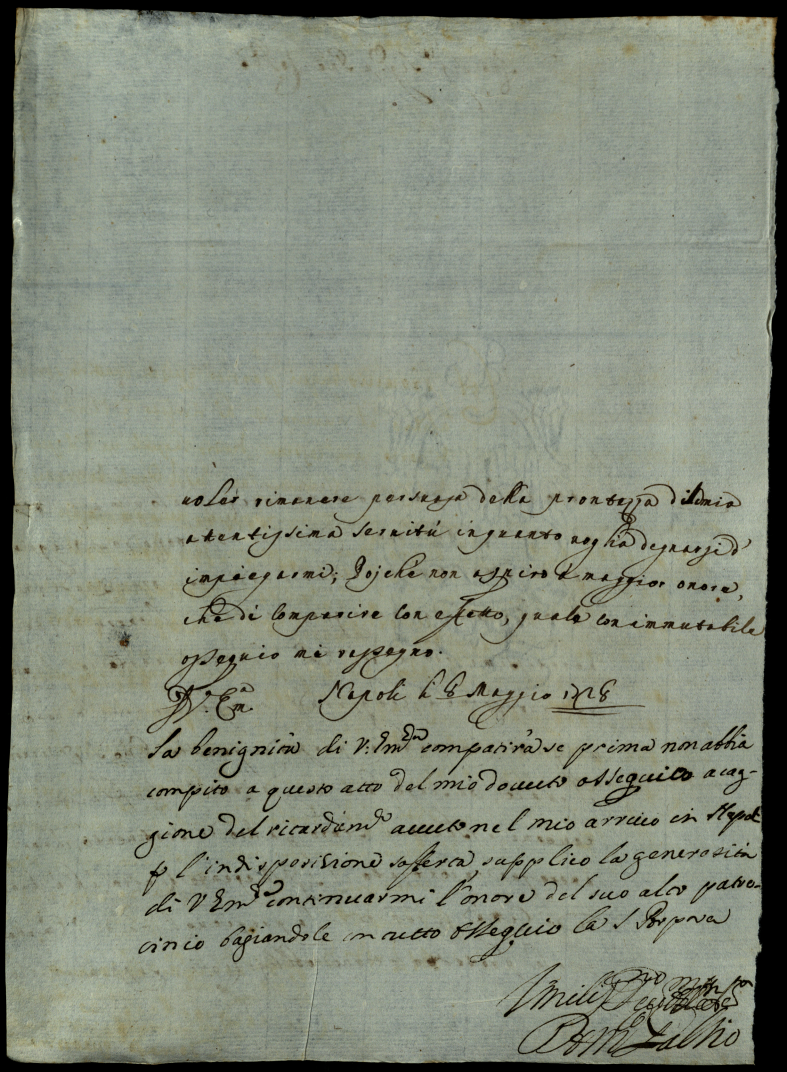 uoler rimanere persuasa della prontezza di mia
atentissima seruitù in quanto voglia degnarsi d'
impiegarmi; Poiche non aspiro à maggior onore,
che di comparire con effetto, quale con immutabile
ossequio mi rassegno.
D V. Em.a Napoli li 8 Maggio 1728
La benignità di V: Em.za compatirà se prima non abbia
compito a questo atto del mio douuto ossequio a cag-
gione del ritardam.to auuto nel mio arriuo in Napoli
p l'indisposizione sofferta, supplico la generosità
di V Em.za continuarmi l'onore del suo alto patro-
cinio bagiandole con tutto ossequio la S. Porpora